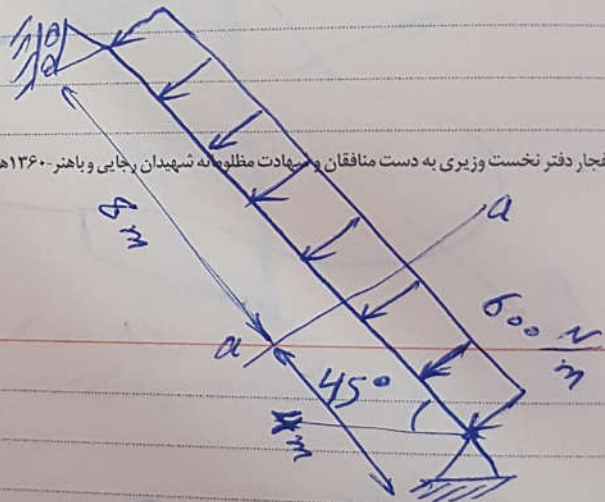 فجار دفتر نخست وزیری به دست منافقان و شهادت مظلومانه شهیدان رجایی و باهنر-۱۳۶۰ه
8 m
a
a
600 N/m
45°
m